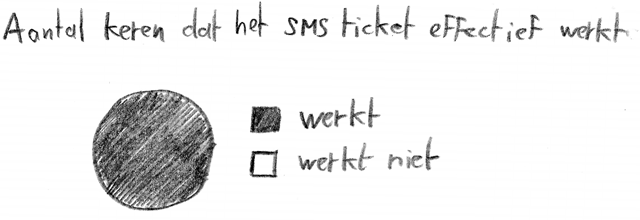 Aantal keren dat het SMS ticket effectief werkt
werkt
werkt niet